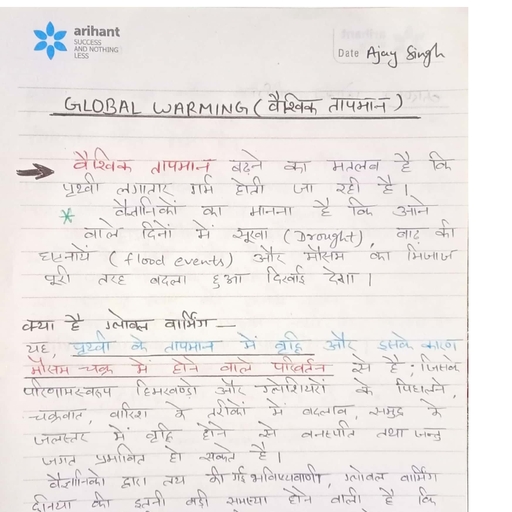 arihant
SUCCESS
AND NOTHING
LESS
Date Ajay Singh
GLOBAL WARMING (वैश्विक तापमान)
वैश्विक तापमान बढ़ने का मतलब है कि
पृथ्वी लगातार गर्म होती जा रही है।
* वैज्ञानिकों का मानना है कि आने
वाले दिनों में सूखा (Drought), बाढ़ की
घटनायें (flood events) और मौसम का मिजाज
पूरी तरह बदला हुआ दिखाई देगा।
क्या है ग्लोबल वार्मिंग —
यह, पृथ्वी के तापमान में वृद्धि और इसके कारण
मौसम चक्र में होने वाले परिवर्तन से है; जिसके
परिणामस्वरूप हिमखण्डों और ग्लेशियरों के पिघलने,
चक्रवात, बारिश के तरीकों में बदलाव, समुद्र के
जलस्तर में वृद्धि होने से वनस्पति तथा जन्तु
जगत प्रभावित हो सकते है।
वैज्ञानिकों द्वारा तय की गई भविष्यवाणी, ग्लोबल वार्मिंग
दुनिया की इतनी बड़ी समस्या होने वाली है कि